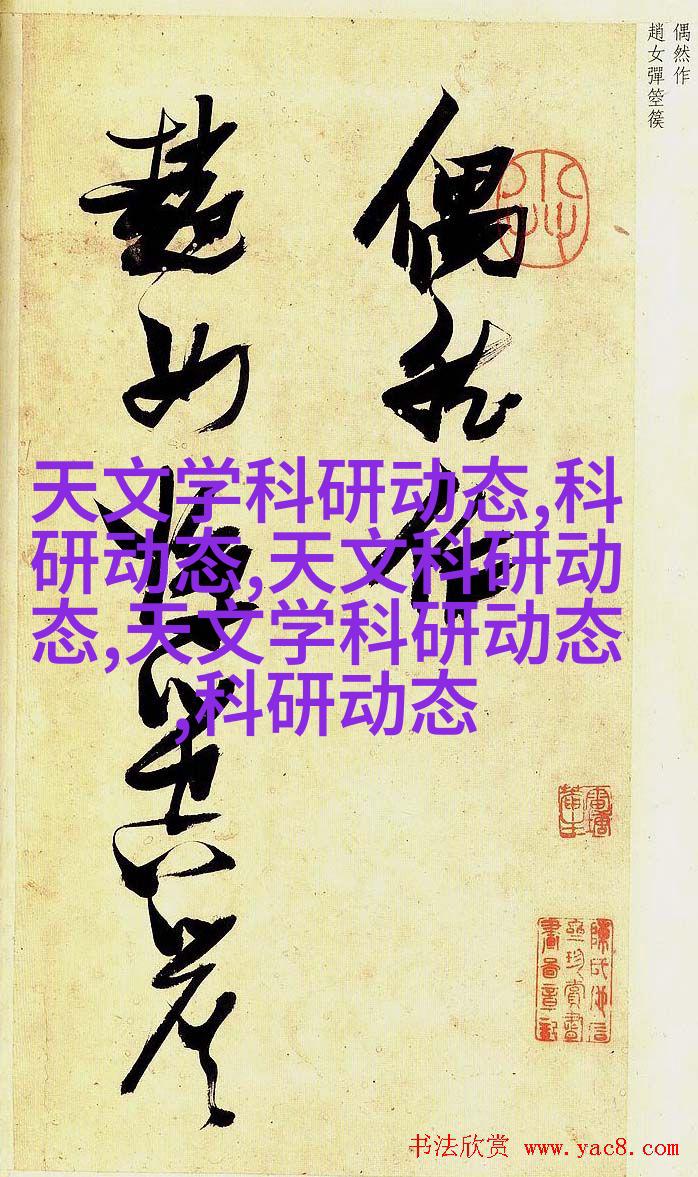 偶然作
趙女彈箜篌
偶然作
趙女彈箜篌
天文学科研动态,科
研动态,天文科研动
态,天文学科研动态
,科研动态
书法欣赏 www.yac8.com